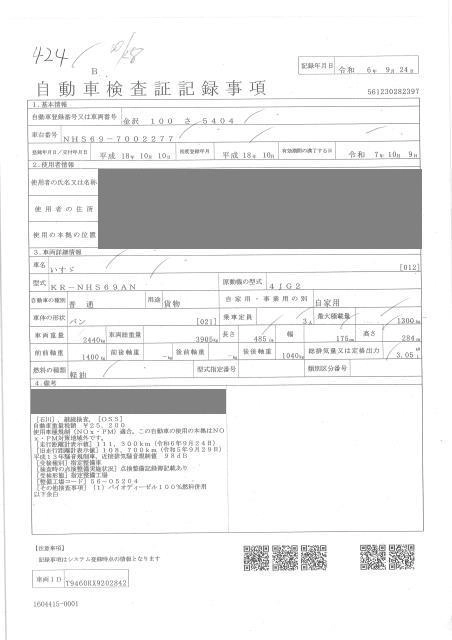 424
B
記録年月日 令和 6年 9月24日
自動車検査証記録事項
561230282397
1.基本情報
自動車登録番号又は車両番号 金沢 100 さ 5404
車台番号 NHS69-7002277
登録年月日/交付年月日 平成 18年 10月 10日 初度登録年月 平成 18年 10月 有効期間の満了する日 令和 7年 10月 9日
2.使用者情報
使用者の氏名又は名称
使用者の住所
使用の本拠の位置
3.車両詳細情報
車名 いすゞ [012]
型式 KR-NHS69AN 原動機の型式 4JG2
自動車の種別 普通 用途 貨物 自家用・事業用の別 自家用
車体の形状 バン [021] 乗車定員 3人 最大積載量 1300kg
車両重量 2440kg 車両総重量 3905kg 長さ 485cm 幅 175cm 高さ 284cm
前前軸重 1400kg 前後軸重 -kg 後前軸重 -kg 後後軸重 1040kg 総排気量又は定格出力 3.05L
燃料の種類 軽油 型式指定番号 類別区分番号
4.備考
[石川], 継続検査, [OSS]
自動車重量税額 ¥25,200
使用車種規制(NOx・PM)適合, この自動車の使用の本拠はNO
x・PM対策地域外です。
[走行距離計表示値] 111,300km (令和6年9月24日)
[旧走行距離計表示値] 108,700km (令和5年9月29日)
平成13年騒音規制車, 近接排気騒音規制値 98dB
[受検種別] 指定整備車
[検査時の点検整備実施状況] 点検整備記録簿記載あり
[受検形態] 指定整備工場
[整備工場コード] 56-05204
[その他検査事項] (1) バイオディーゼル100%燃料併用
以下余白
【注意事項】
記録事項はシステム登録時点の情報となります
車両ID T9460RX9202842
1604415-0001